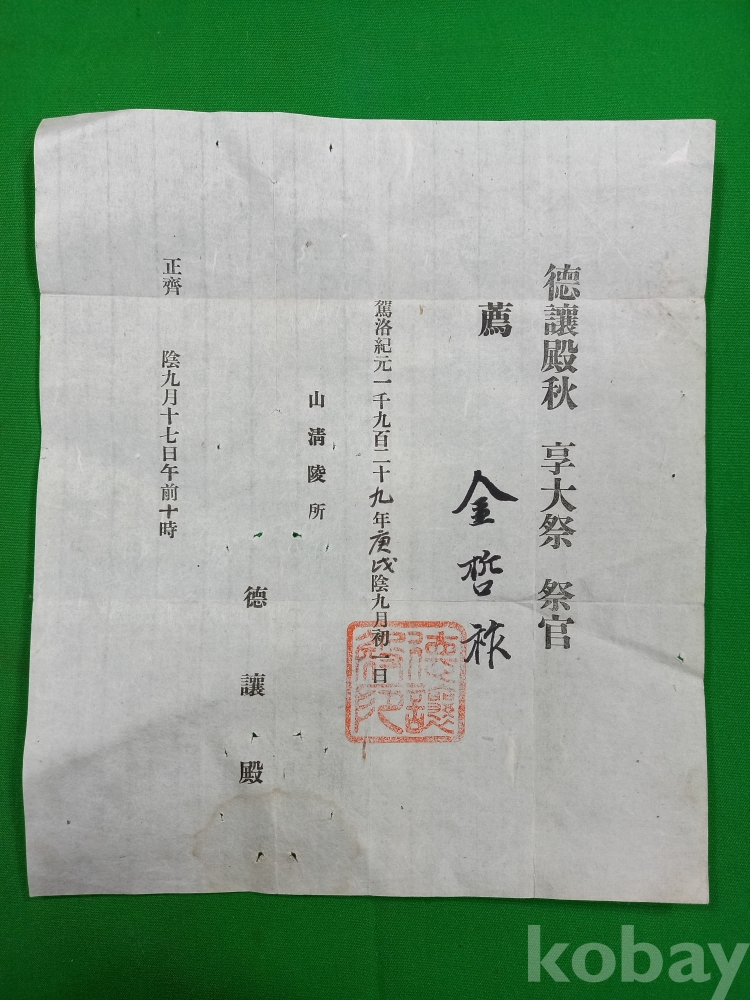 德讓殿秋 享大祭 祭官
薦
金哲祚
駕洛紀元一千九百二十九年庚戌陰九月初一日
山淸陵所
德讓殿
正齊 陰九月十七日午前十時
kobay